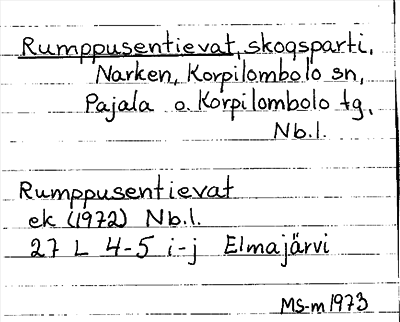 Rumppusentievat, skogsparti,
Narken, Korpilombolo sn,
Pajala o. Korpilombolo tg,
Nb.l.
Rumppusentievat
ek (1972) Nb.l.
27 L 4-5 i-j Elmajärvi
MS-m 1973